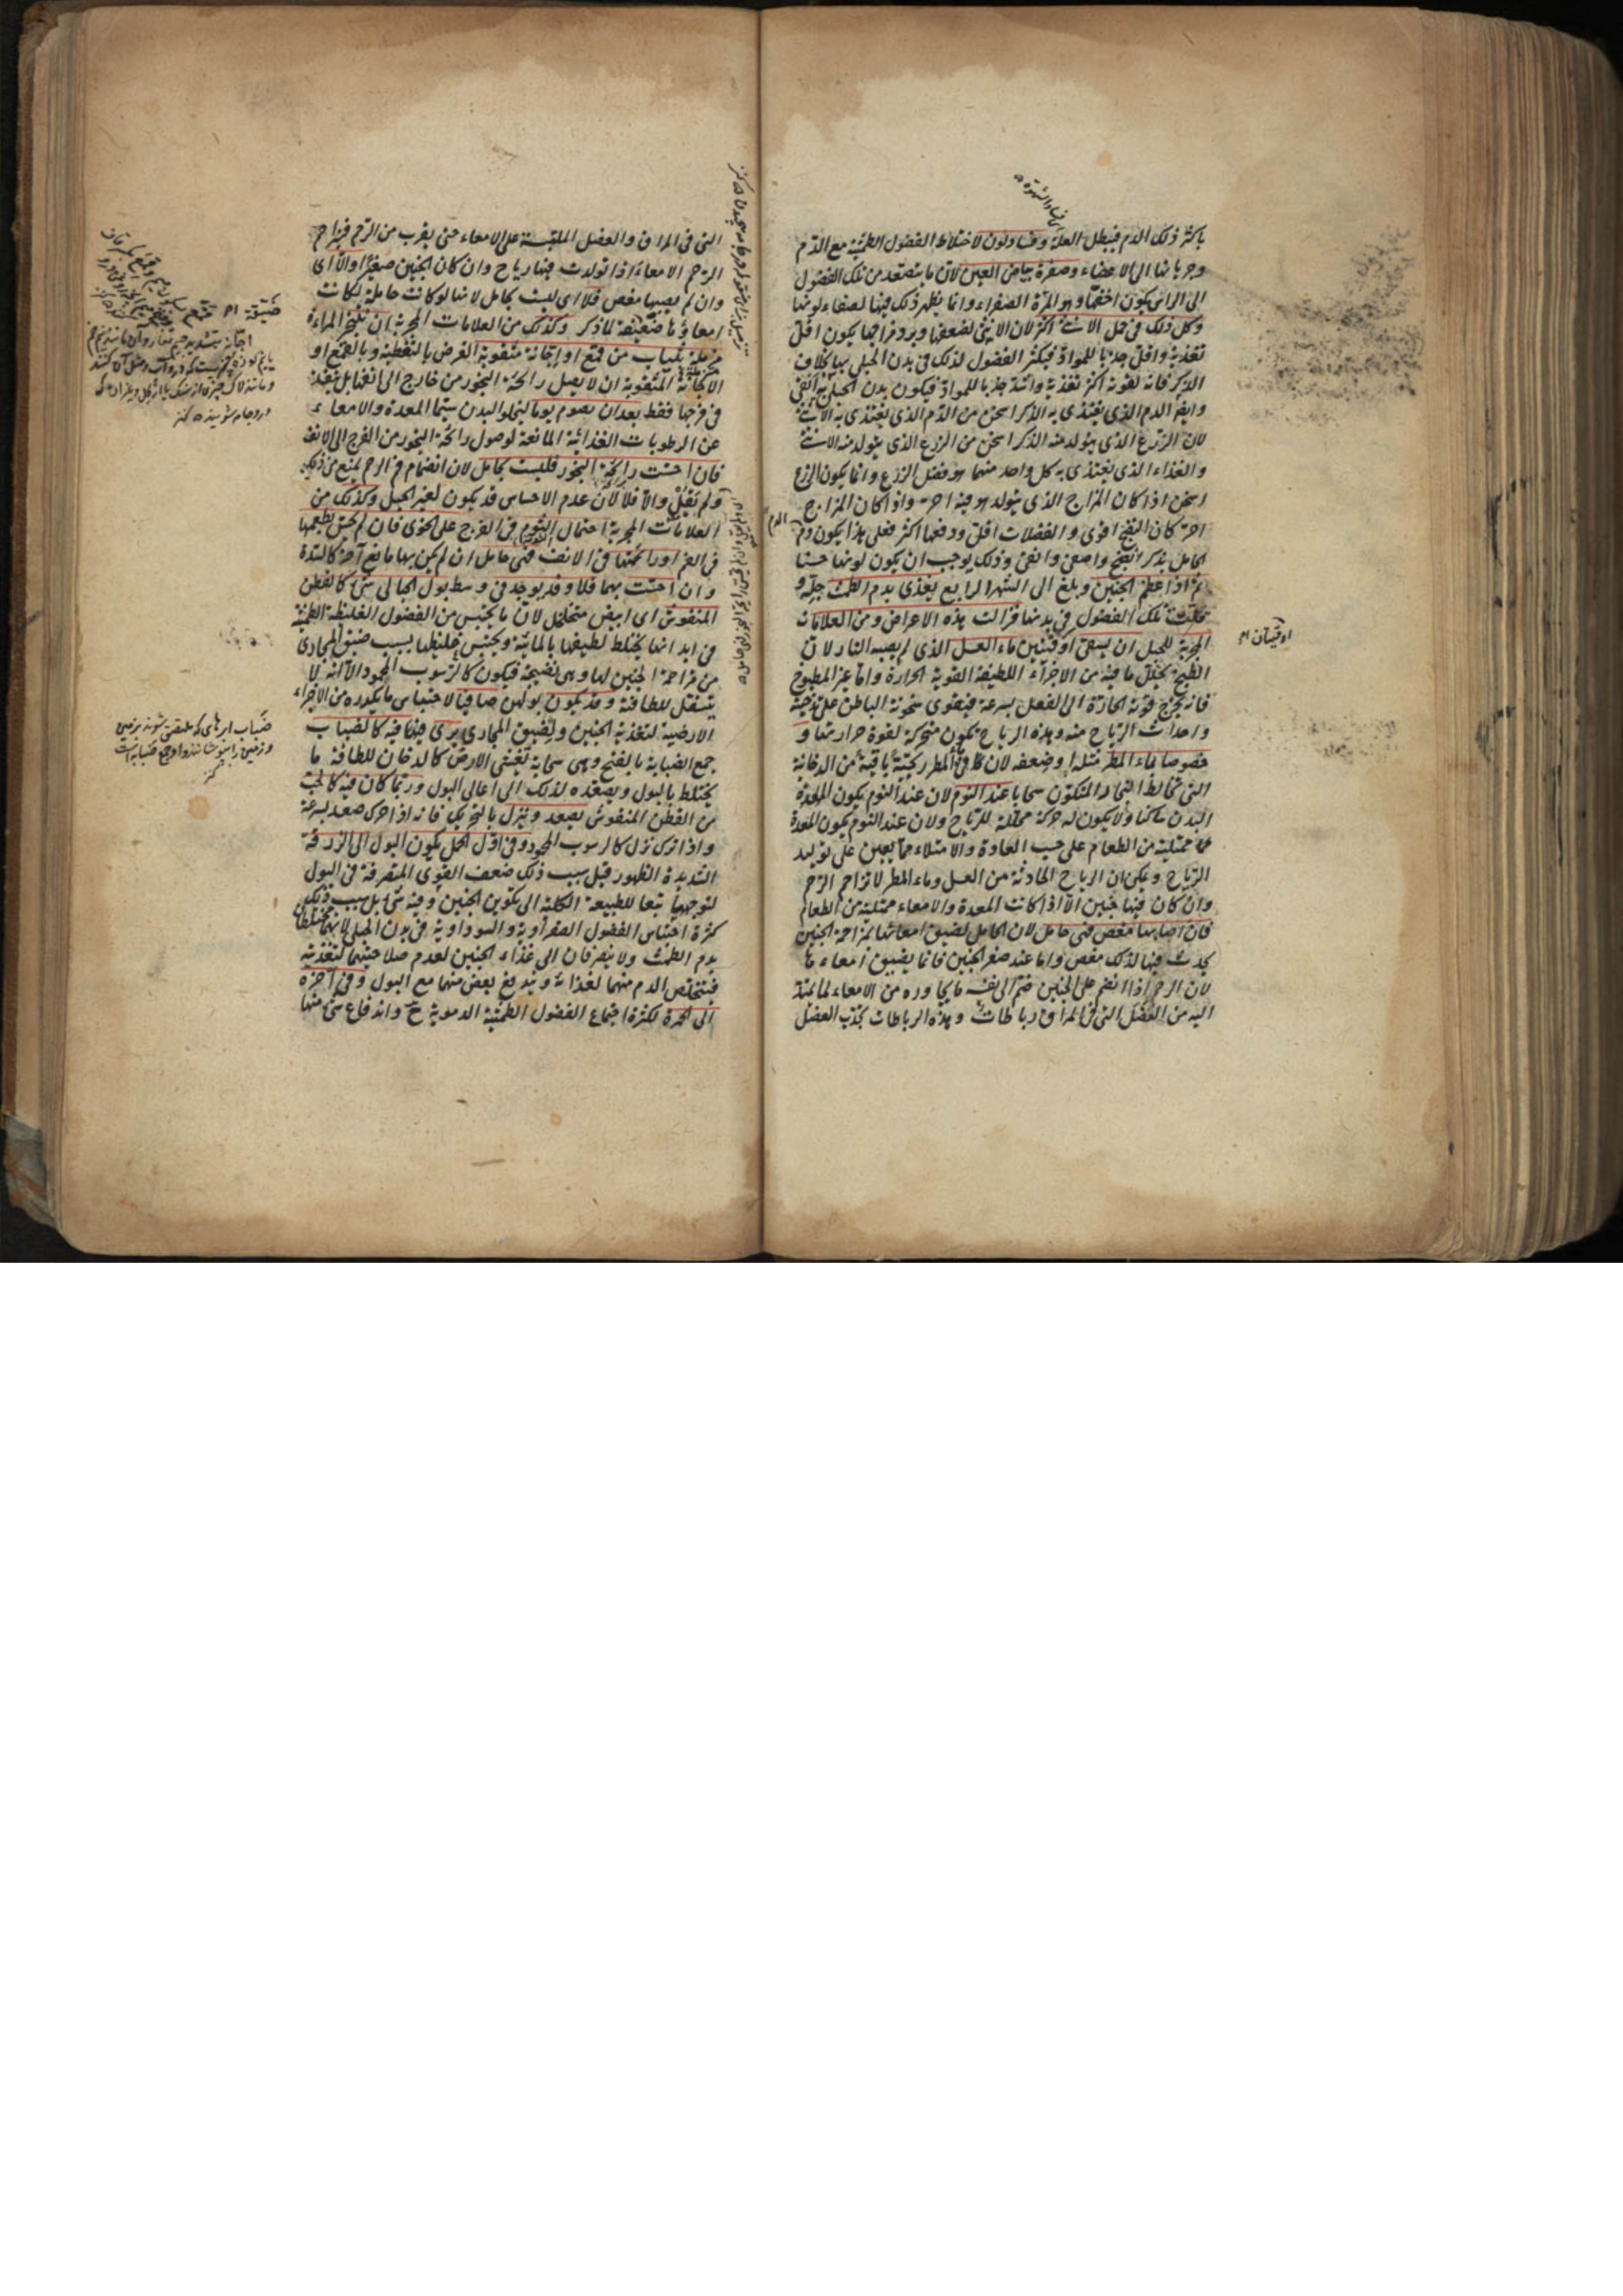 باكثر ذلك الدم فيبطل العلة وفساد لون لاختلاط الفضول الطمثية مع الدم
وجريانها الى الاعضاء وصفرة بياض العين لان ما يتصعد من تلك الفضول
الى الراس يكون اخفها وهو المرة الصفراء وانما يظهر ذلك فيها لصفاء لونها
وكل ذلك فى حمل الانثى اكثر لان الانثى لضعفها وبرد مزاجها يكون اقل
تغذية واقل جذبا للمواد فيكثر الفضول لذلك فى بدن الحبلى بها بخلاف
الذكر فانه لقوته اكثر تغذية واشد جذبا للمواد فيكون بدن الحبلى به انقى
وايضا الدم الذى يغتذى به الذكر اسخن من الدم الذى يغتذى به الانثى
لان الزرع الذى يتولد منه الذكر اسخن من الزرع الذى يتولد منه الانثى
والغذاء الذى يغتذى به كل واحد منهما هو فضل الزرع وانما يكون الزرع
اسخن اذا كان المزاج الذى يتولد هو فيه احر واذا كان المزاج
احر كان النضج اقوى والفضلات اقل ودفعها اكثر فعلى هذا يكون دم
الحامل بذكر انضج واصفى وانقى وذلك يوجب ان يكون لونها حسنا
ثم اذا عظم الجنين وبلغ الى الشهر الرابع يغذى بدم الطمث جله و
قلت تلك الفضول فى بدنها فزالت هذه الاعراض ومن العلامات
المجربة للحبل ان يسقى اوقيتين ماء العسل الذى لم يصبه النار لان
الطبخ يحلل ما فيه من الاجزاء اللطيفة القوية الحرارة واما غير المطبوخ
فانه يخرج قوته الحارة الى الفعل بسرعة فيقوى سخونة الباطن على تدخينه
واحداث الرياح منه وهذه الرياح يكون متحركة لقوة حرارتها و
خصوصا بماء المطر مثله او ضعفه لان فى المطر ريحية باقية من الدخانية
التى تخالط البخار المتكون سحابا عند النوم لان عند النوم يكون
البدن ساكنا ولا يكون له حركة محللة للرياح ولان عند النوم يكون المعدة
ممتلية من الطعام على حسب العادة والامتلاء مما يعين على توليد
الرياح ويمكن ان الرياح الحادثة من العسل وماء المطر لا تزاحم الرحم
وان كان فيها جنين الا اذا كانت المعدة والامعاء ممتلية من الطعام
فان اصابها مغص فهى حامل لان الحامل لضيق امعائها بمزاحمة الجنين
يحدث فيها لذلك مغص واما عند صغر الجنين فانما يضيق امعاءها
لان الرحم اذا انضم على الجنين ضم الى نفسه ما يجاوره من الامعاء لما يمتد
اليه من العضل التى فى المراق رباطات وهذه الرباطات يجذب العضل
الدم
اوقيتان
التى فى المراق والعضل الملتبسة على الامعاء حتى يقرب من الرحم فيزاحم
الرحم الامعاء اذا تولدت فيها رياح وان كان الجنين صغيرا والا اى
وان لم يصبها مغص فلا اى ليست بحامل لانها لو كانت حاملة لكانت
امعاؤها ضيقة لما ذكر وكذلك من العلامات المجربة ان تبخر المراءة
مزملة بثياب من قمع او اجانة مثقوبة الغرض بالتغطية وبالقمع او
الاجانة المثقوبة ان لا يصل رائحة البخور من خارج الى انفها بل ينفذ
فى فرجها فقط بعد ان يصوم يوما ليخلو البدن سيما المعدة والامعاء
عن الرطوبات الغذائية المانعة لوصول رائحة البخور من الفرج الى الانف
فان احست رائحة البخور فليست بحامل لان انضمام فم الرحم يمنع من ذلك
ولم يقل والا فلا لان عدم الاحساس قد يكون لغير الحبل وكذلك من
العلامات المجربة احتمال الثوم فى الفرج على الخوى فان لم تحس بطعمها
فى الفم او رائحتها فى الانف فهى حامل ان لم يكن بها مانع آخر كالسدة
وان احست بهما فلا وقد يوجد فى وسط بول الحبالى شئ كالقطن
المنفوش اى ابيض متخلخل لان ما يحتبس من الفضول الغليظة الطمثية
فى ابدانها يختلط لطيفها بالمائية ويحتبس غليظها بسبب ضيق المجارى
من مزاحمة الجنين لها وهى نضيجة فيكون كالرسوب المحمود الا انه لا
يتسفل للطافته وقد يكون بولهن صافيا لاحتباس ما يكدره من الاجزاء
الارضية لتغذية الجنين ولضيق المجارى يرى فيها فيه كالضباب
جمع الضبابة بالفتح وهى سحابة تغشى الارض كالدخان للطافة ما
يختلط بالبول ويصعده لذلك الى اعالى البول وربما كان فيه كالحب
من القطن المنفوش يصعد وينزل بالتحريك فانه اذا حرك صعد بسرعة
واذا ترك نزل كالرسوب المحمود وفى اول الحمل يكون البول الى الزرقة
الشديدة الظهور قيل سبب ذلك ضعف القوى المتصرفة فى البول
لتوجهها تبعا للطبيعة الكلية الى تكوين الجنين وفيه شئ بل سبب ذلك
كثرة احتباس الفضول الصفراوية والسوداوية فى بدن الحبلى لانهما تختلطان
بدم الطمث ولا ينصرفان الى غذاء الجنين لعدم صلاحيتهما لتغذيته
فيتخلص الدم منهما لغذائه ويندفع بعض منهما مع البول وفى آخره
الى الحمرة لكثرة اجتماع الفضول الطمثية الدموية ح واندفاع شئ منها
ضيقة
ضباب ابرهاى كه ملتصق شوند بزمين
و زمين را بپوشانند واحدها ضبابة است
كنز